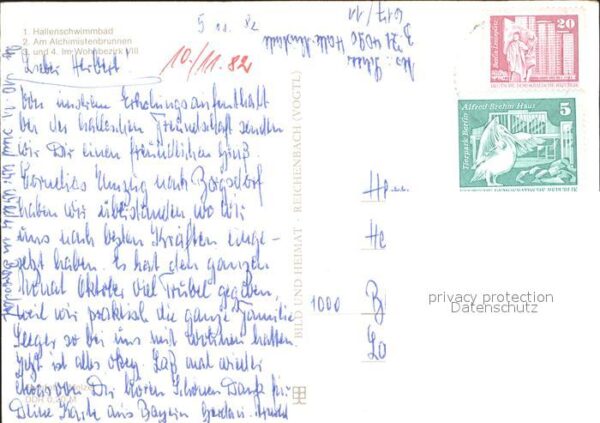 1. Hallenschwimmbad
2. Am Alchimistenbrunnen
3. und 4. Im Wohnbezirk VIII
5 11. 82
Lieber Herbert!
10./11.82
Von unserem Erholungsaufenthalt
bei der halleschen Freundschaft senden
wir Dir einen freundlichen Gruß.
Cornelias Umzug nach Borgsdorf
haben wir überstanden, wo wir
uns nach besten Kräften einge-
setzt haben. Es hat den ganzen
Monat Oktober viel Trubel gegeben,
weil wir praktisch die ganze Familie
Seeger so bei uns mit hatten.
Jetzt ist alles okay. Laß mal wieder
etwas von Dir hören. Schönen Dank für
Deine Karte aus Bayern
DDR 0,20 M
BILD UND HEIMAT · REICHENBACH (VOGTL)
617/11
4090 Halle-Neustadt
1000 B
privacy protection
Datenschutz
Berlin, Leninplatz
20
DEUTSCHE DEMOKRATISCHE REPUBLIK
Alfred Brehm Haus
5
Tierpark Berlin
DEUTSCHE DEMOKRATISCHE REPUBLIK